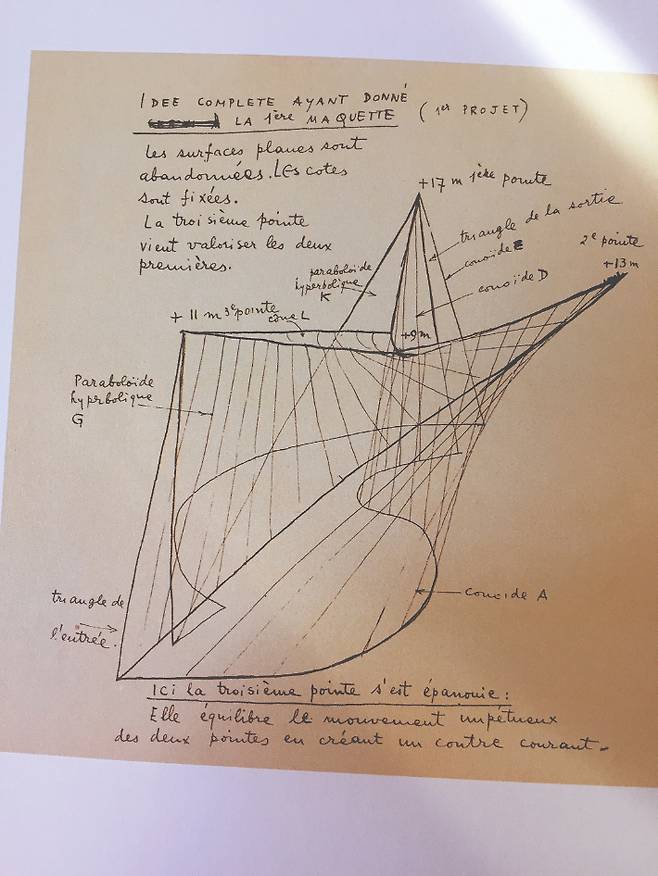 IDEE COMPLETE AYANT DONNÉ
LA 1ère MAQUETTE (1er PROJET)
Les surfaces planes sont
abandonnées. LEs cotes
sont fixées.
La troisième pointe
vient valoriser les deux
premières.
+17 m 1ère pointe
triangle de la sortie
conoïde E
2e pointe
+13 m
paraboloïde
hyperbolique
K
conoïde D
+ 11 m 3e pointe
cône L
+9 m
Paraboloïde
hyperbolique
G
conoide A
triangle de
l'entrée.
Ici la troisième pointe s'est épanouie :
Elle équilibre le mouvement impétueux
des deux pointes en créant un contre courant-